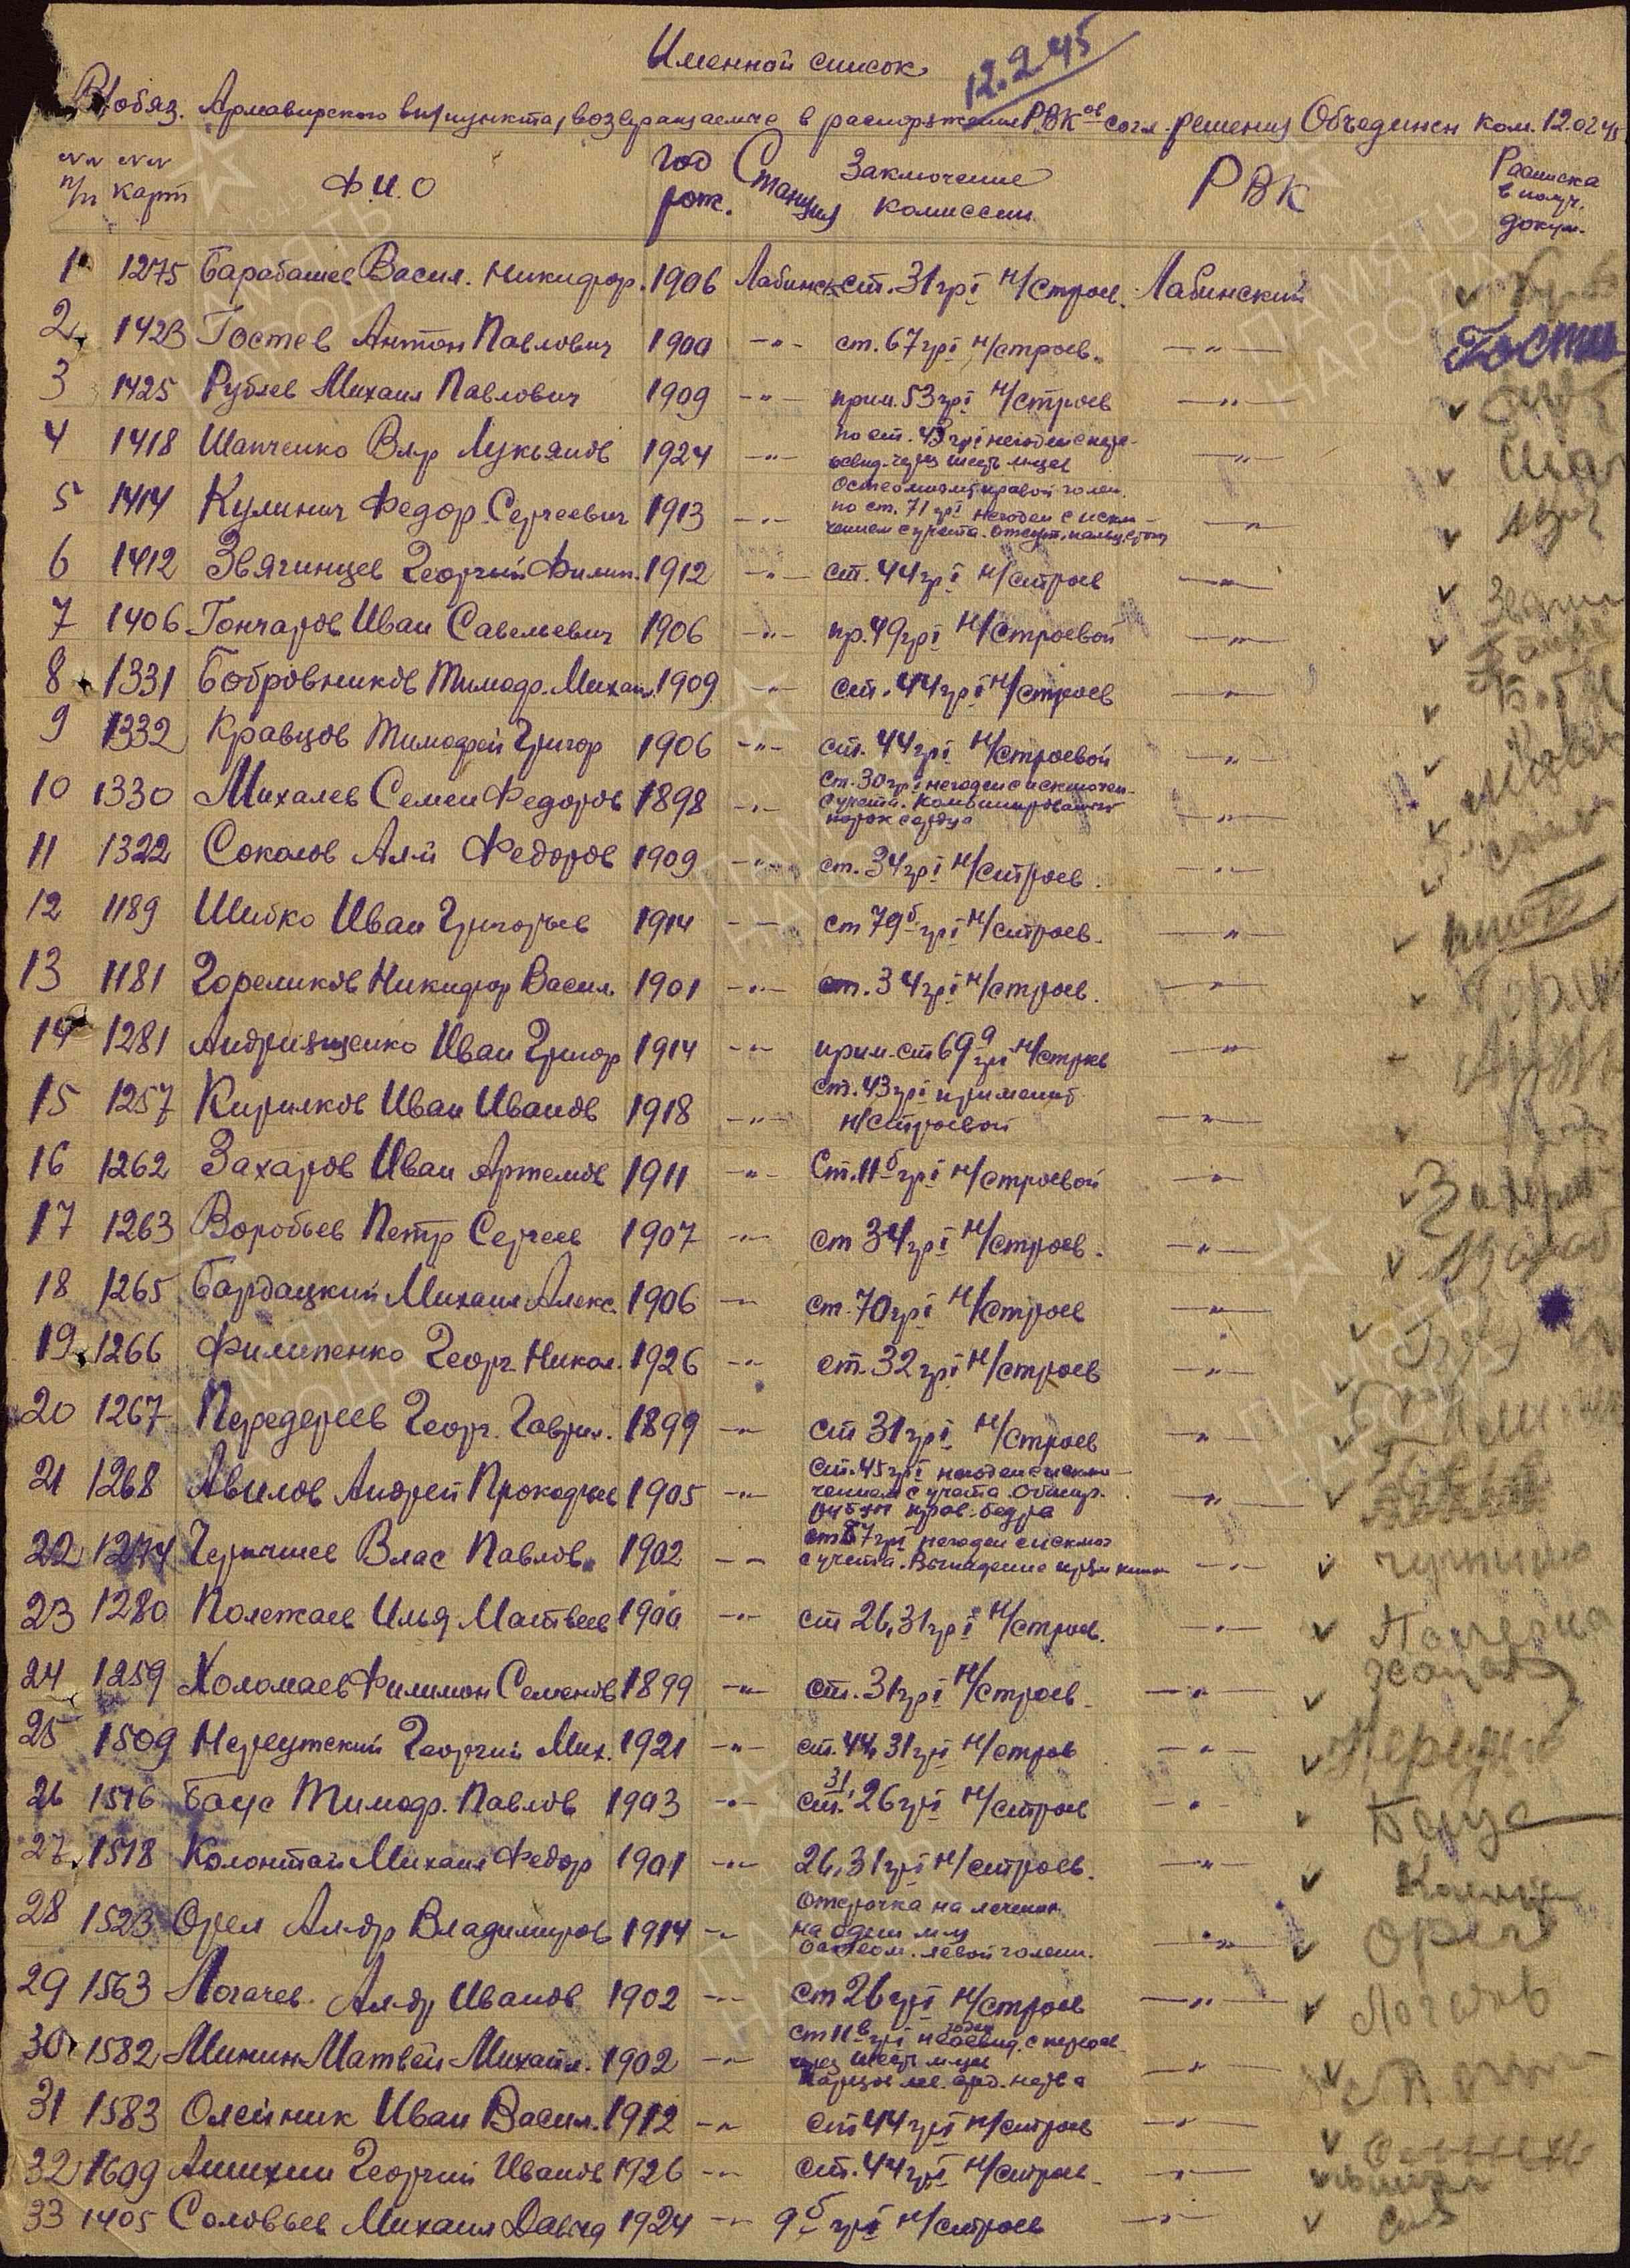 Именной список
12.2.45
В/обяз. Армавирского в/пункта, возвращаемые в распоряжение РВКов согл. решения Объединен ком. 12.02.45
№№ п/п №№ карт Ф.И.О год рож. Станция Заключение комиссии РВК Расписка в получ. докум.
1 1275 Барабашев Васил. Никифор. 1906 Лабинск ст. 31 гр I н/строев. Лабинский
2 1423 Гостев Антон Павлович 1900 -"- ст. 67 гр I н/строев. -"- Гости
3 1425 Рублев Михаил Павлович 1909 -"- прим. 53 гр I н/строев -"-
4 1418 Шапченко Влр Лукьянов 1924 -"- по ст. 43 гр I негоден с пере-
освид. через шесть месяцев -"- Шап
Остеомиэлит правой голен.
5 1414 Кулинич Федор Сергеевич 1913 -"- по ст. 71 гр I негоден с исклю-
чением с учета. Отсут. пальц. стоп -"-
6 1412 Звягинцев Георгий Филип. 1912 -"- ст. 44 гр I н/строев -"- Звяги
7 1406 Гончаров Иван Савельевич 1906 -"- пр. 49 гр I н/строевой -"-
8 1331 Бобровников Тимофр. Михаил. 1909 -"- ст. 44 гр I н/строев -"- Боб
9 1332 Кравцов Тимофей Григор 1906 -"- ст. 44 гр I н/строевой -"-
10 1330 Михалев Семен Федоров 1898 -"- ст. 30 гр I негоден с исключен.
с учета. Комбинированный
порок сердца -"-
11 1322 Соколов Ал-й Федоров 1909 -"- ст. 34 гр I н/строев. -"-
12 1189 Шибко Иван Григорьев 1914 -"- ст 79б гр I н/строев. -"-
13 1181 Гореликов Никифор Васил. 1901 -"- ст. 34 гр I н/строев. -"-
14 1281 Андрющенко Иван Григор 1914 -"- прим. ст 69д гр I н/строев -"-
15 1257 Кирилков Иван Иванов 1918 -"- ст. 43 гр I применит
н/строевой -"-
16 1262 Захаров Иван Артемов 1911 -"- Ст. 11б гр I н/строевой -"- Захар
17 1263 Воробьев Петр Сергеев 1907 -"- ст 34 гр I н/строев. -"-
18 1265 Бардацкий Михаил Алекс. 1906 -"- ст. 70 гр I н/строев -"-
19 1266 Филипенко Георг. Никол. 1926 -"- ст. 32 гр I н/строев -"-
20 1267 Передереев Георг. Гаврил. 1899 -"- ст 31 гр I н/строев -"-
21 1268 Авилов Андрей Прокофьев 1905 -"- ст. 45 гр I негоден с исклю-
чением с учета. Обшир.
рубцы прав. бедра -"-
22 1274 Чернышев Влас Павлов. 1902 -"- ст 57 гр I негоден с исключ
с учета. Выпадение прям кишк -"-
23 1280 Полежаев Илья Матвеев 1900 -"- ст 26,31 гр I н/строев. -"-
24 1259 Холомаев Филимон Семенов 1899 -"- ст. 31 гр I н/строев. -"-
25 1509 Нереутский Георгий Мих. 1921 -"- ст. 44, 31 гр I н/строев -"- Нереут
26 1516 Баус Тимофр. Павлов 1903 -"- ст. 31, 26 гр I н/строев -"-
27 1518 Колонтай Михаил Федор 1901 -"- 26,31 гр I н/строев. -"-
28 1523 Орел Ал-др Владимиров 1914 -"- Отсрочка на лечение
на один м-ц
Остеом. левой голени. -"- Орел
29 1563 Логачев Ал-др Иванов 1902 -"- ст 26 гр I н/строев -"- Логачев
30 1582 Минин Матвей Михайл. 1902 -"- ст 11в гр I негоден с переосвид.
через шесть м-цев -"-
31 1583 Олейник Иван Васил. 1912 -"- ст 44 гр I н/строев -"-
32 1609 Анихин Георгий Иванов 1926 -"- ст. 44 гр I н/строев. -"-
33 1405 Соловьев Михаил Давид 1924 -"- 9б гр I н/строев -"-
ПАМЯТЬ НАРОДА